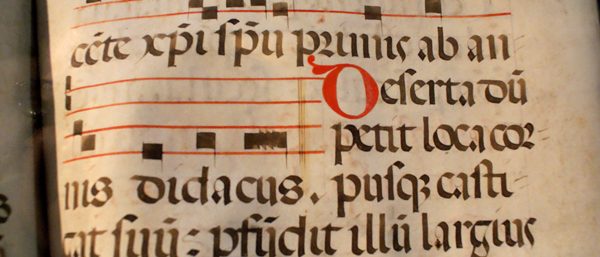 cēte xp̄i sp̄u primis ab an
Deserta dū
petit loca cor
nis didacus. pusqꝫ casti
gat suū: pfūdit illū largius